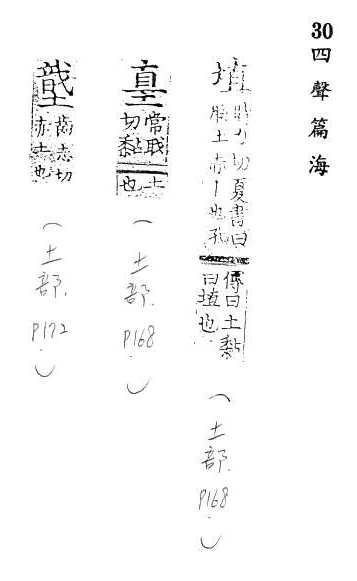 30四聲篇海
埴
切夏書曰
土赤丨也孔
傳曰土黏
曰埴也
(土部.P168.)
切黏
土
也
(土部.P168.)
齒志切
赤土也
(土部.P172.)